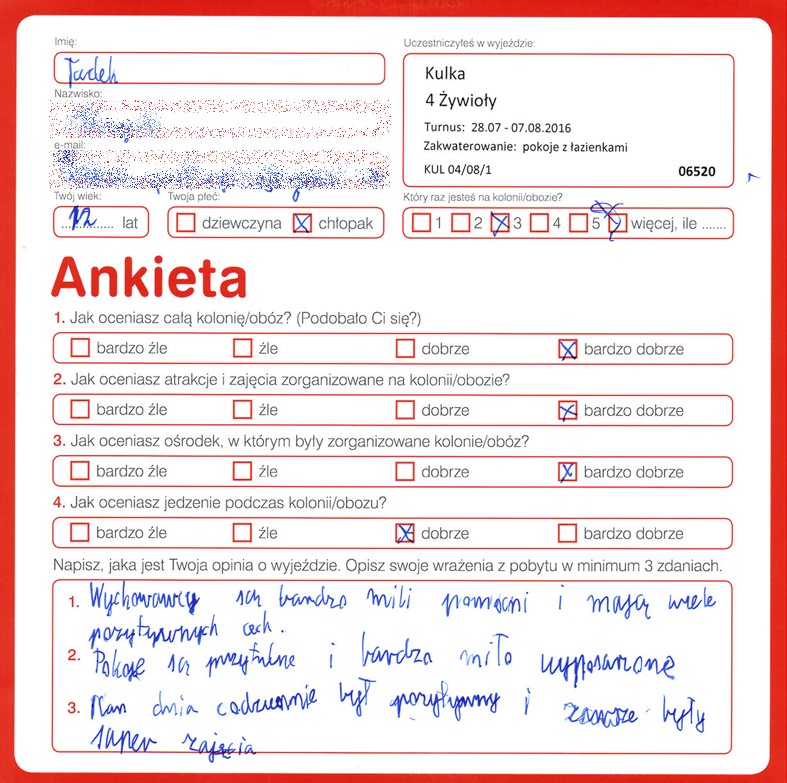 Imię:
Tadek
Nazwisko:
e-mail:
Twój wiek:
12 lat
Twoja płeć:
dziewczyna chłopak
Uczestniczyłeś w wyjeździe:
Kulka
4 Żywioły
Turnus: 28.07 - 07.08.2016
Zakwaterowanie: pokoje z łazienkami
KUL 04/08/1 06520
Który raz jesteś na kolonii/obozie?
1 2 3 4 5 więcej, ile .......
Ankieta
1. Jak oceniasz całą kolonię/obóz? (Podobało Ci się?)
bardzo źle źle dobrze bardzo dobrze
2. Jak oceniasz atrakcje i zajęcia zorganizowane na kolonii/obozie?
bardzo źle źle dobrze bardzo dobrze
3. Jak oceniasz ośrodek, w którym były zorganizowane kolonie/obóz?
bardzo źle źle dobrze bardzo dobrze
4. Jak oceniasz jedzenie podczas kolonii/obozu?
bardzo źle źle dobrze bardzo dobrze
Napisz, jaka jest Twoja opinia o wyjeździe. Opisz swoje wrażenia z pobytu w minimum 3 zdaniach.
1. Wychowawcy są bardzo mili pomocni i mają wiele
pozytywnych cech.
2. Pokoje są przytulne i bardzo miło wyposarzone
3. Plan dnia codziennie był pozytywny i zawsze były
super zajęcia